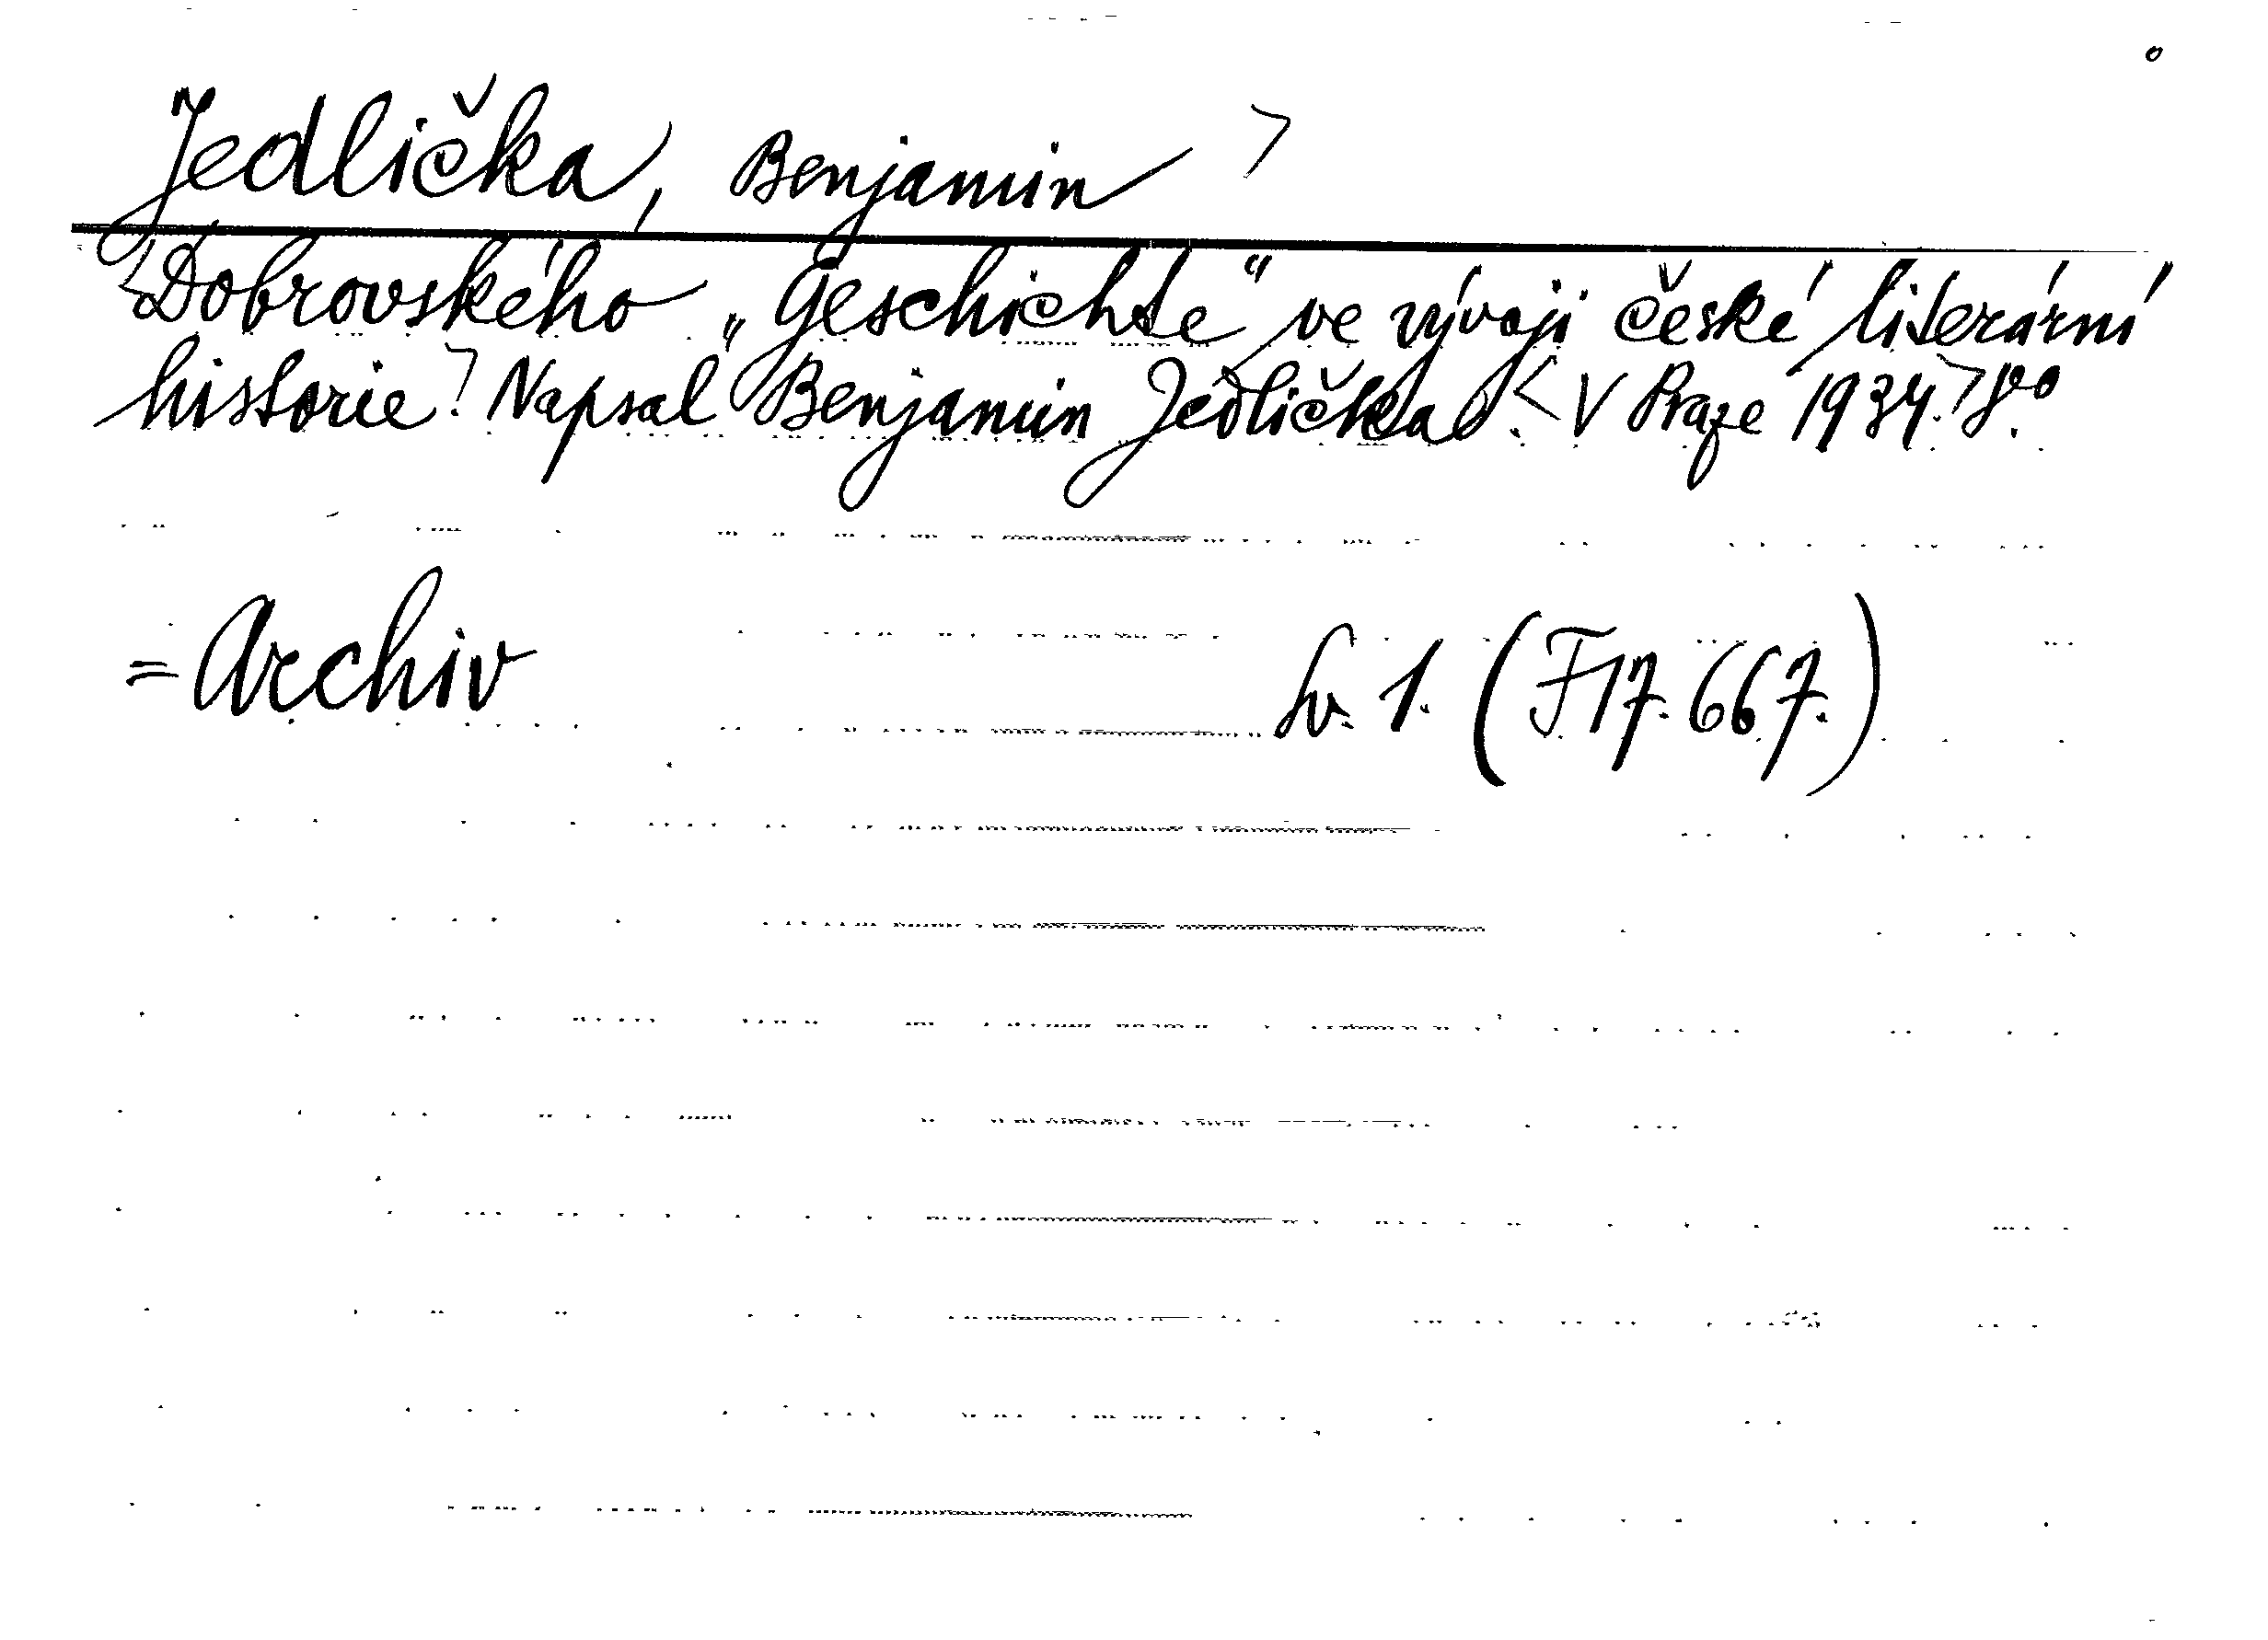 Jedlička, Benjamin >
<Dobrovského „Geschichte“ ve vývoji české literární
historie.> Napsal Benjamin Jedlička. < V Praze 1934.> 8°.
= Archiv Sv. 1. (F 17.667.)